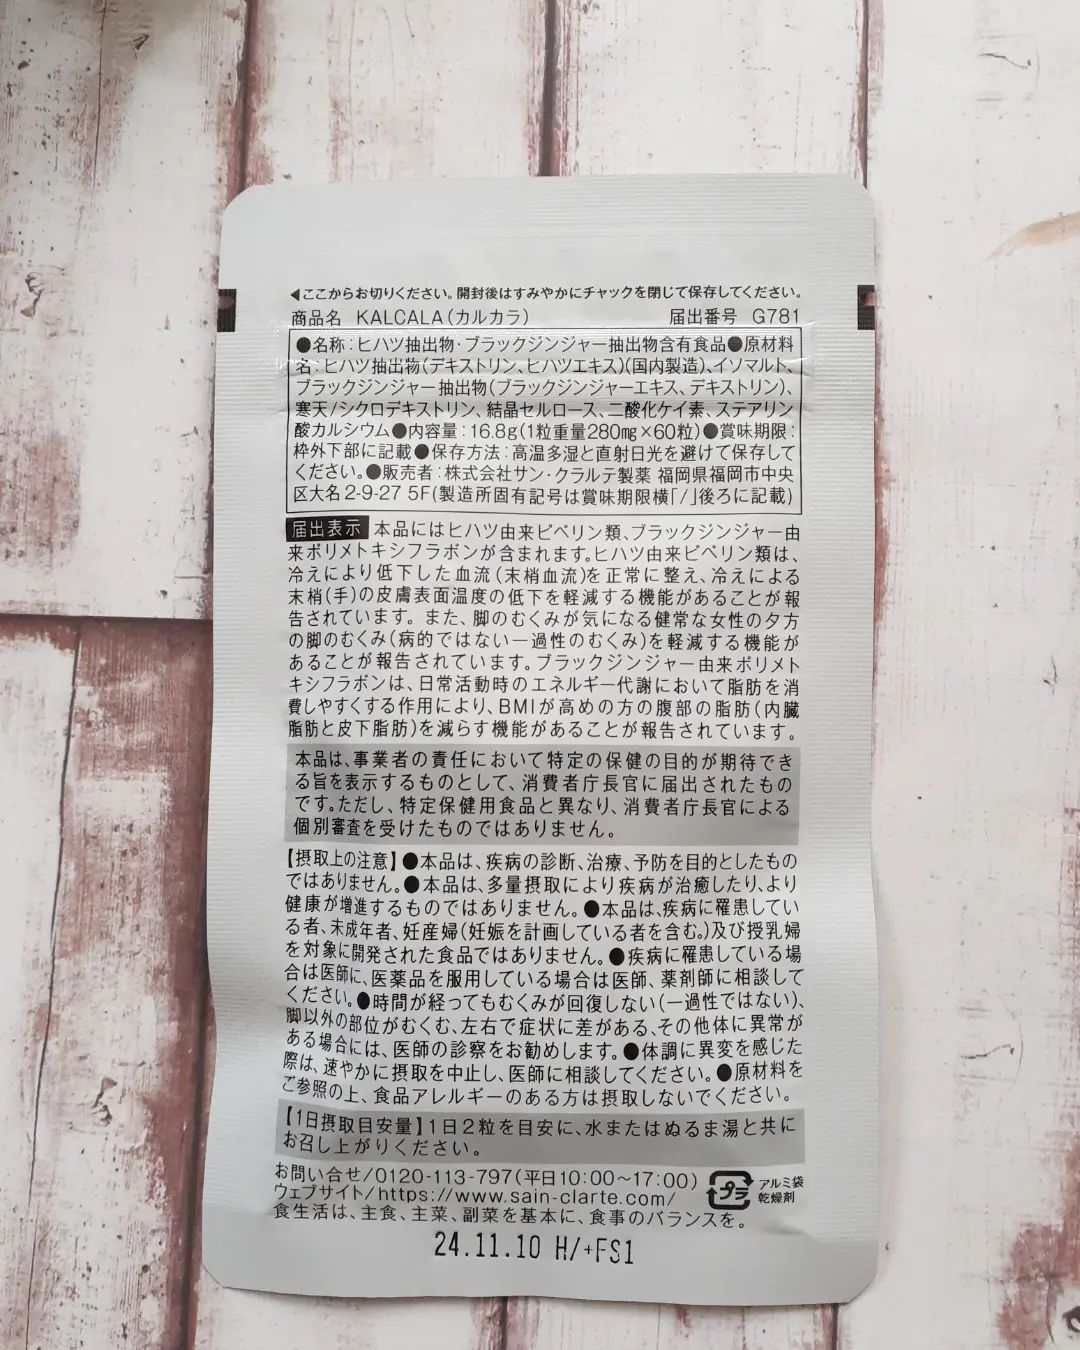 ◀ここからお切りください。開封後はすみやかにチャックを閉じて保存してください。
商品名 KALCALA(カルカラ) 届出番号 G781
●名称:ヒハツ抽出物・ブラックジンジャー抽出物含有食品●原材料
名:ヒハツ抽出物(デキストリン、ヒハツエキス)(国内製造)、イソマルト、
ブラックジンジャー抽出物(ブラックジンジャーエキス、デキストリン)、
寒天/シクロデキストリン、結晶セルロース、二酸化ケイ素、ステアリン
酸カルシウム●内容量:16.8g(1粒重量280mg×60粒)●賞味期限:
枠外下部に記載●保存方法:高温多湿と直射日光を避けて保存して
ください。●販売者:株式会社サン・クラルテ製薬 福岡県福岡市中央
区大名2-9-27 5F(製造所固有記号は賞味期限横「/」後ろに記載)
届出表示 本品にはヒハツ由来ピペリン類、ブラックジンジャー由
来ポリメトキシフラボンが含まれます。ヒハツ由来ピペリン類は、
冷えにより低下した血流(末梢血流)を正常に整え、冷えによる
末梢(手)の皮膚表面温度の低下を軽減する機能があることが報
告されています。また、脚のむくみが気になる健常な女性の夕方
の脚のむくみ(病的ではない一過性のむくみ)を軽減する機能が
あることが報告されています。ブラックジンジャー由来ポリメト
キシフラボンは、日常活動時のエネルギー代謝において脂肪を消
費しやすくする作用により、BMIが高めの方の腹部の脂肪(内臓
脂肪と皮下脂肪)を減らす機能があることが報告されています。
本品は、事業者の責任において特定の保健の目的が期待でき
る旨を表示するものとして、消費者庁長官に届出されたもの
です。ただし、特定保健用食品と異なり、消費者庁長官による
個別審査を受けたものではありません。
【摂取上の注意】●本品は、疾病の診断、治療、予防を目的としたもの
ではありません。●本品は、多量摂取により疾病が治癒したり、より
健康が増進するものではありません。●本品は、疾病に罹患してい
る者、未成年者、妊産婦(妊娠を計画している者を含む。)及び授乳婦
を対象に開発された食品ではありません。●疾病に罹患している場
合は医師に、医薬品を服用している場合は医師、薬剤師に相談して
ください。●時間が経ってもむくみが回復しない(一過性ではない)、
脚以外の部位がむくむ、左右で症状に差がある、その他体に異常が
ある場合には、医師の診察をお勧めします。●体調に異変を感じた
際は、速やかに摂取を中止し、医師に相談してください。●原材料を
ご参照の上、食品アレルギーのある方は摂取しないでください。
【1日摂取目安量】1日2粒を目安に、水またはぬるま湯と共に
お召し上がりください。
お問い合せ/0120-113-797(平日10:00〜17:00)
ウェブサイト/https://www.sain-clarte.com/
プラ アルミ袋
乾燥剤
食生活は、主食、主菜、副菜を基本に、食事のバランスを。
24.11.10 H/+FS1